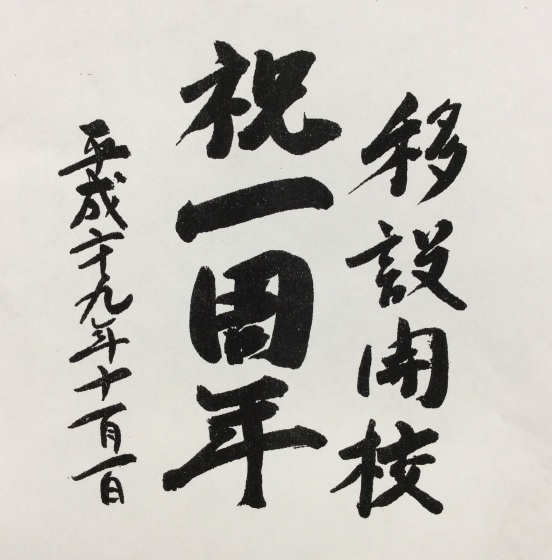 移設開校
祝一周年
平成二十九年十一月一日